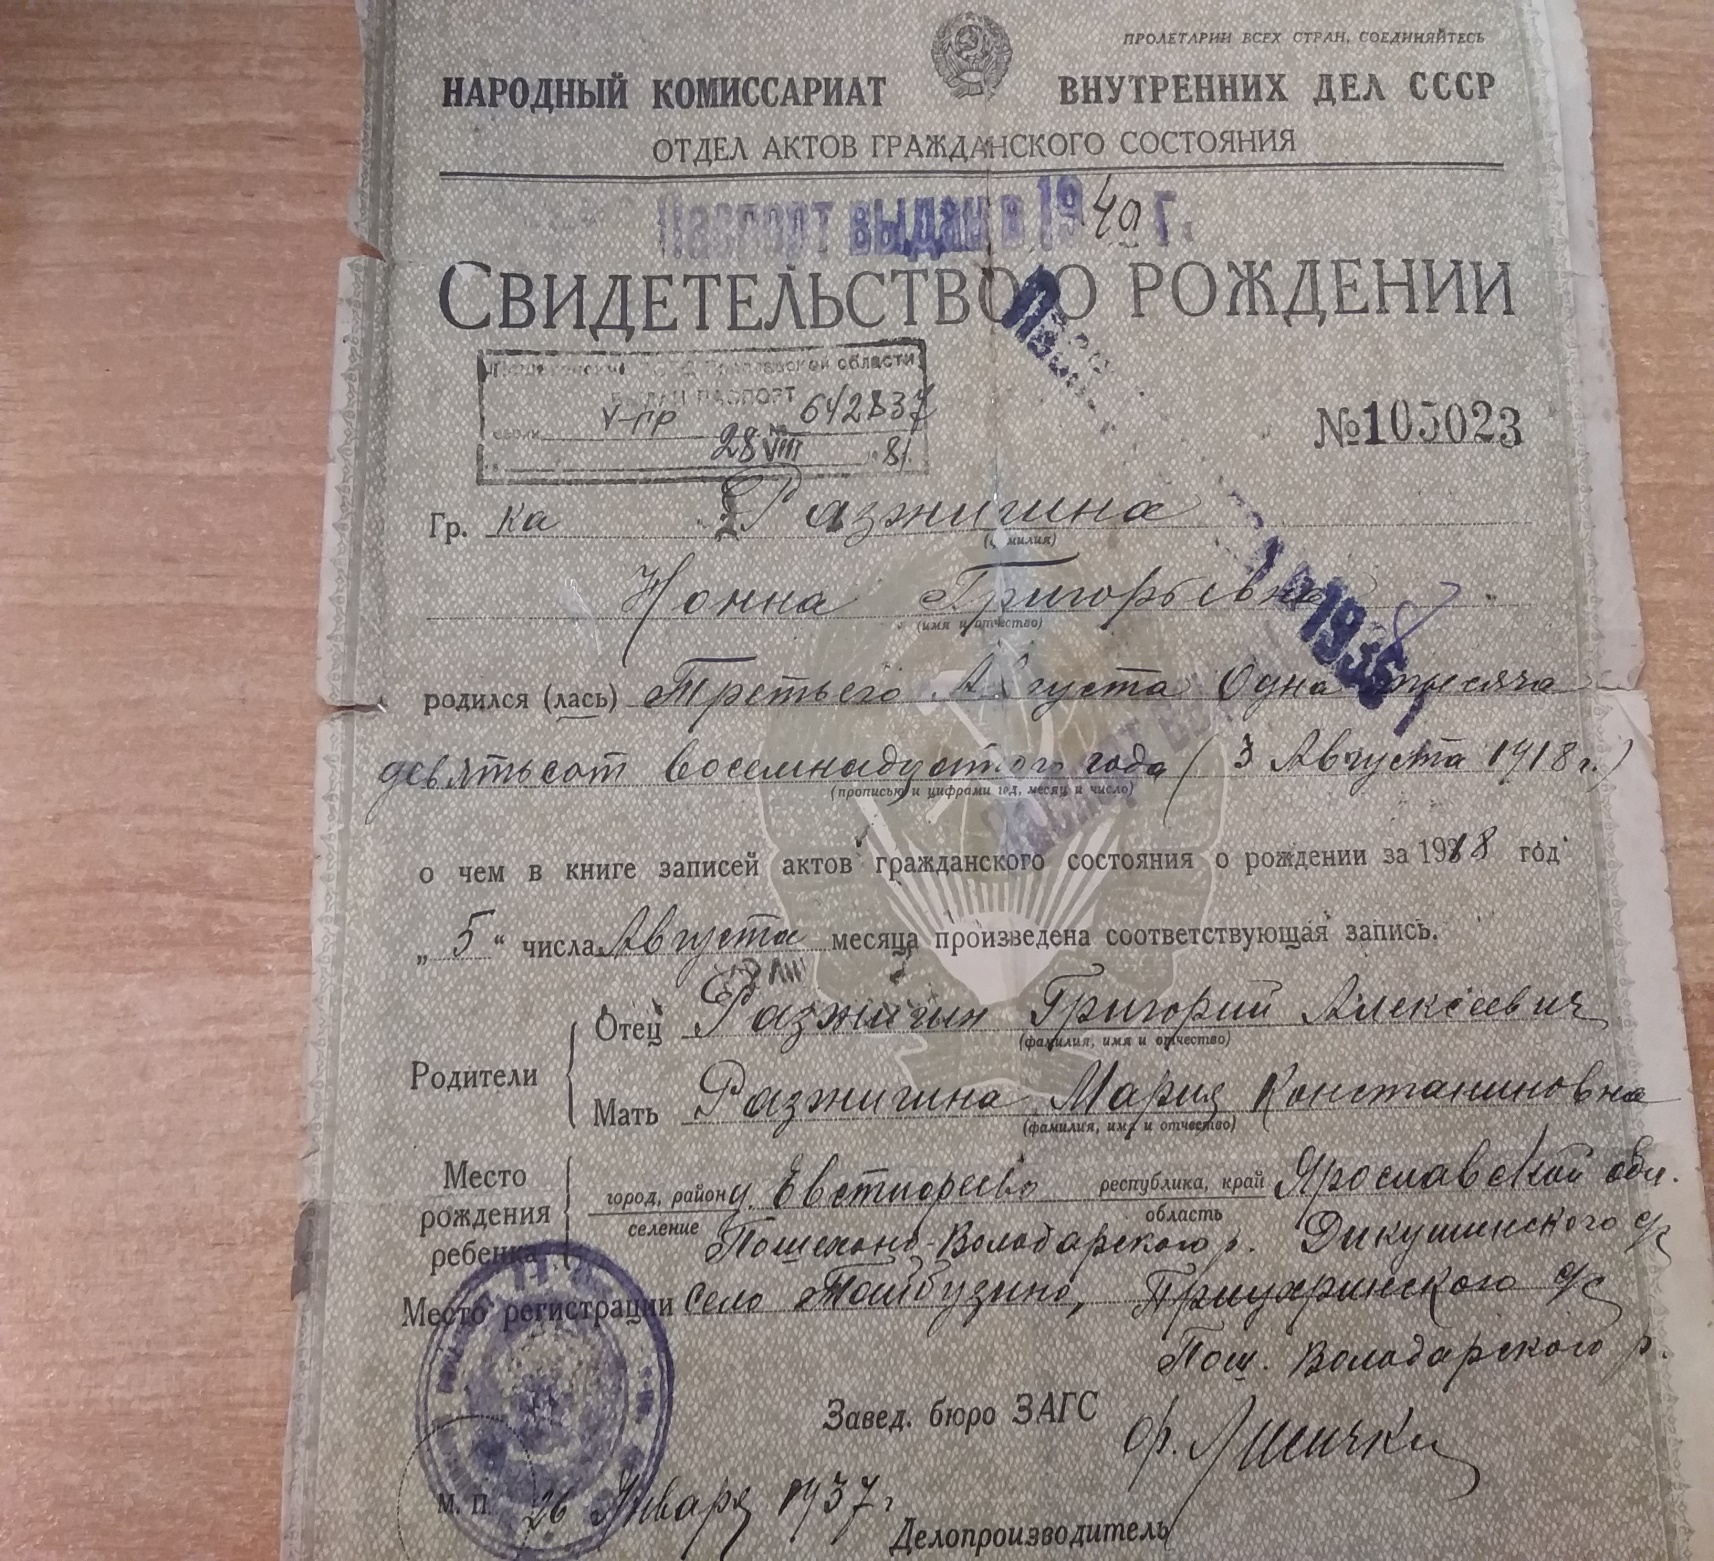 ПРОЛЕТАРИИ ВСЕХ СТРАН, СОЕДИНЯЙТЕСЬ
НАРОДНЫЙ КОМИССАРИАТ ВНУТРЕННИХ ДЕЛ СССР
ОТДЕЛ АКТОВ ГРАЖДАНСКОГО СОСТОЯНИЯ
Паспорт выдан в 1940 г.
СВИДЕТЕЛЬСТВО О РОЖДЕНИИ
области
ВЫДАН ПАСПОРТ
серия V-ПР № 642837
28 VIII 81
№105023
Гр. ка Разжигина
(фамилия)
Нонна Григорьевна
(имя и отчество)
1938
родился (лась) Третьего Августа Одна тысяча
девятьсот восемнадцатого года (3 Августа 1918 г.)
(прописью и цифрами год, месяц и число)
о чем в книге записей актов гражданского состояния о рождении за 1918 год
„5“ числа Августа месяца произведена соответствующая запись.
Родители
Отец Разжигин Григорий Алексеевич
(фамилия, имя и отчество)
Мать Разжигина Мария Констаниновна
(фамилия, имя и отчество)
Место рождения ребенка
город, район селение Евстифеево республика, край область Ярославской обл.
Пошехоно-Володарского р. Дикушинского с/с
Место регистрации Село
с/с
Пош. Володарского р.
Завед. бюро ЗАГС
М. П. 26 Января 1937 г.
Делопроизводитель